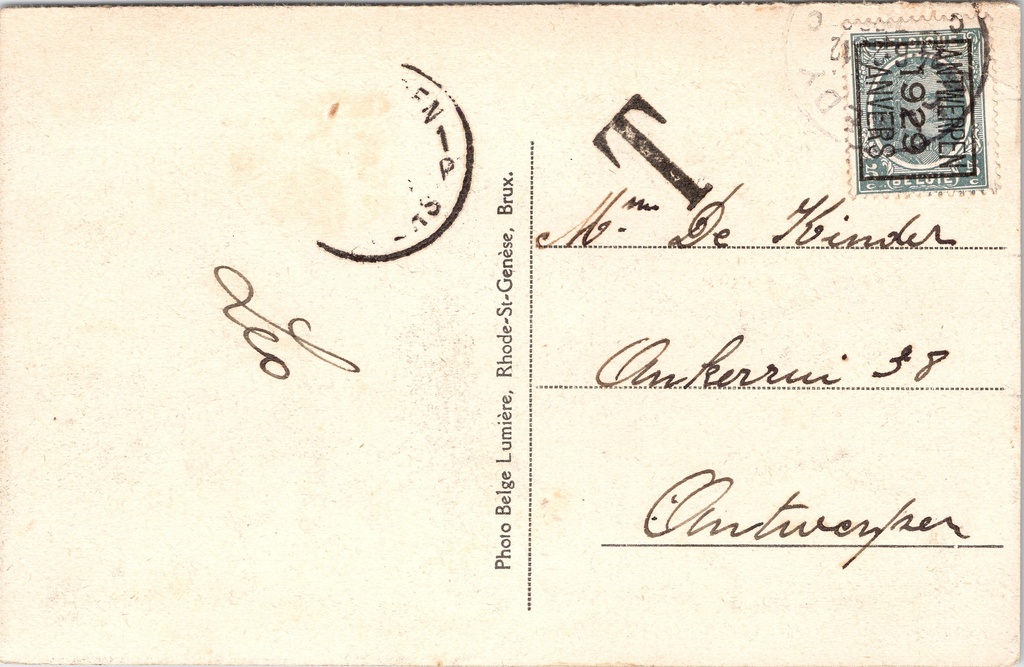 ANTWERPEN
1929
ANVERS
T
EN 1 - A
Leo
Photo Belge Lumière, Rhode-St-Genèse, Brux.
Mme De Kinder
Ankerrui 38
Antwerpen